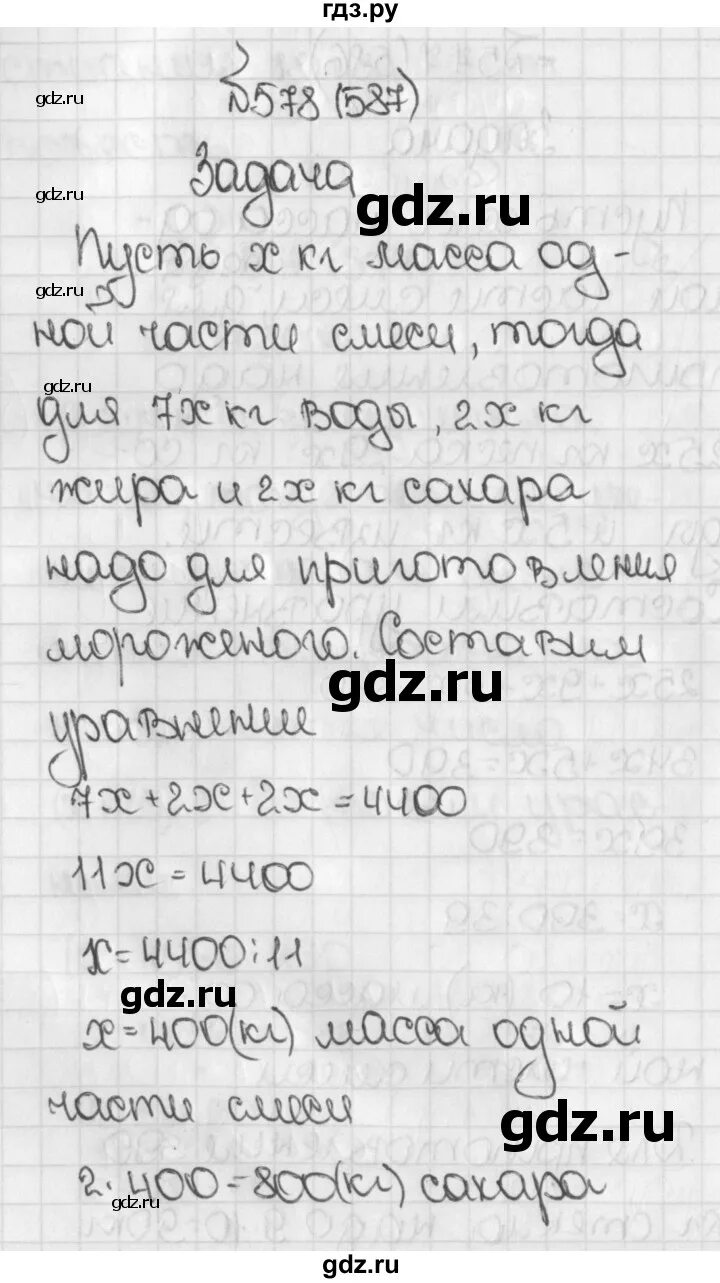 гдз.ру
gdz.ru
№578 (587)
gdz.ru
Задача
gdz.ru
Пусть x кг масса од-
gdz.ru
ной части смеси, тогда
gdz.ru
для 7x кг воды, 2x кг
жира и 2x кг сахара
надо для приготовления
мороженого. Составим
gdz.ru
уравнение
7x+2x+2x=4400
11x=4400
x=4400:11
gdz.ru
x=400(кг) масса одной
части смеси
gdz.ru
2·400=800(кг) сахара
gdz.ru
gdz.ru